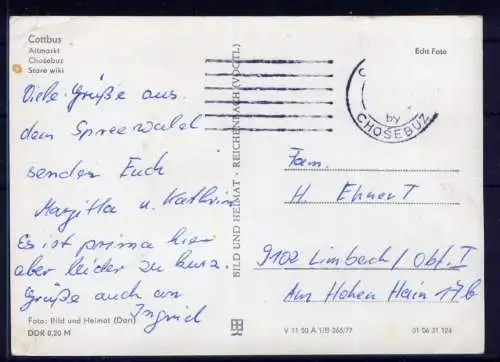 Cottbus
Altmarkt
Chośebuz
Stare wiki
Echt Foto
Viele Grüße aus
dem Spreewald
senden Euch
Margitta u. Kathrin
Es ist prima hier
aber leider zu kurz.
Grüße auch an
Ingrid
BILD UND HEIMAT · REICHENBACH (VOGTL)
by
CHOŚEBUZ
Fam.
H. Ehnert
9102 Limbach/Obf. I
Am Hohen Hain 17b
Foto: Bild und Heimat (Darr)
DDR 0,20 M
V 11 50 A 1/B 265/77
01 06 31 124